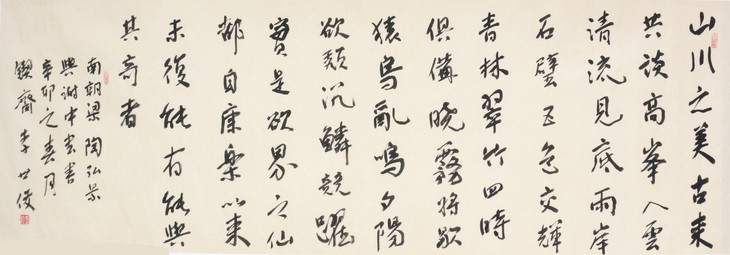 山川之美古来
共谈高峯入雲
清流見底兩岸
石壁五色交輝
青林翠竹四時
俱備曉霧將歇
猿鳥亂鳴夕陽
欲頹沉鱗競躍
實是欲界之仙
都自康樂以来
未復能有能與
其奇者
南朝梁陶弘景
與謝中書書
辛卯之春月
鍥齋李世俊